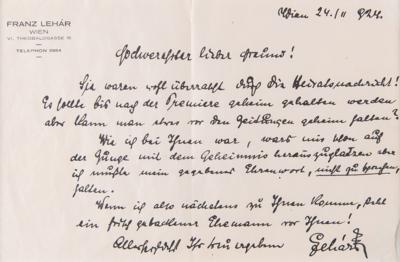 FRANZ LEHÁR
WIEN
VI. THEOBALDGASSE 16
TELEPHON 2964
Wien 24./II 924.
Hochverehrter lieber Freund!
Sie waren wohl überrascht durch die Heiratsnachricht!
Es sollte bis nach der Premiere geheim gehalten werden
aber kann man etwas vor den Zeitungen geheim halten?
Wie ich bei Ihnen war, war's mir schon auf
der Zunge mit dem Geheimnis herauszuplatzen aber
ich mußte mein gegebenes Ehrenwort, nicht zu sprechen,
halten.
Wenn ich also nächstens zu Ihnen komme, steht
ein frisch gebackener Ehemann vor Ihnen!
Allerherzlichst Ihr treu ergebener
Lehár